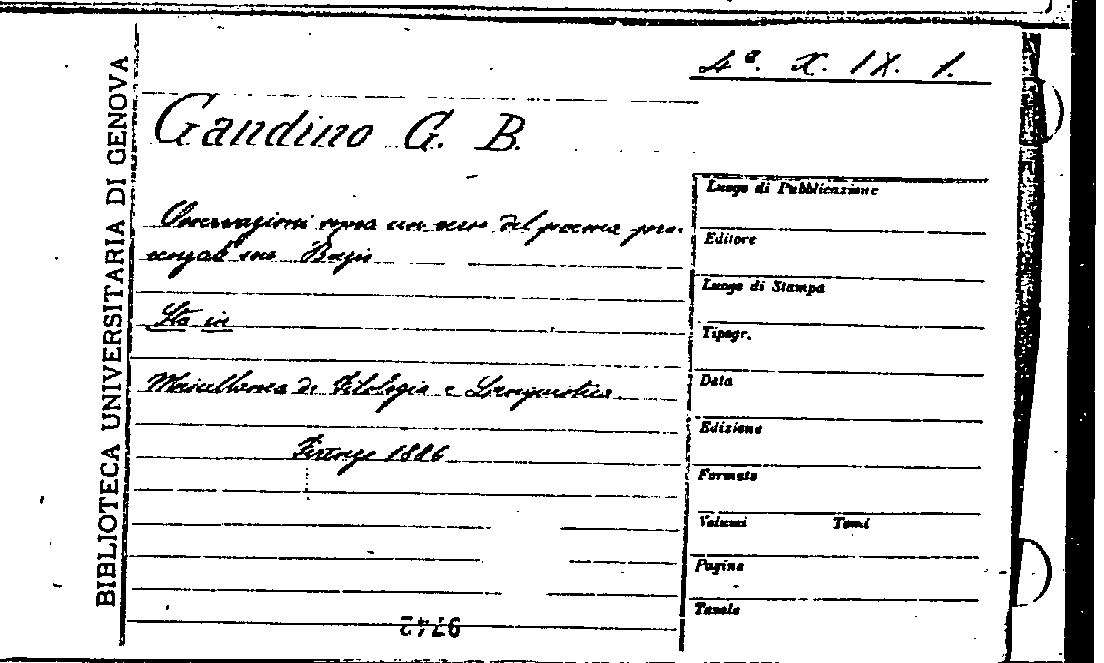 4°. X. IX. 1.
BIBLIOTECA UNIVERSITARIA DI GENOVA
Gandino G. B.
Osservazioni sopra un verso del poema pro-
venzale su Boezio
Sta in
Miscellanea di Filologia e Linguistica
Firenze 1886
Luogo di Pubblicazione
Editore
Luogo di Stampa
Tipogr.
Data
Edizione
Formato
Volumi Tomi
Pagine
Tavole